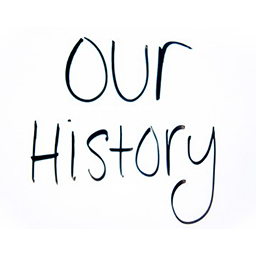 Our
History